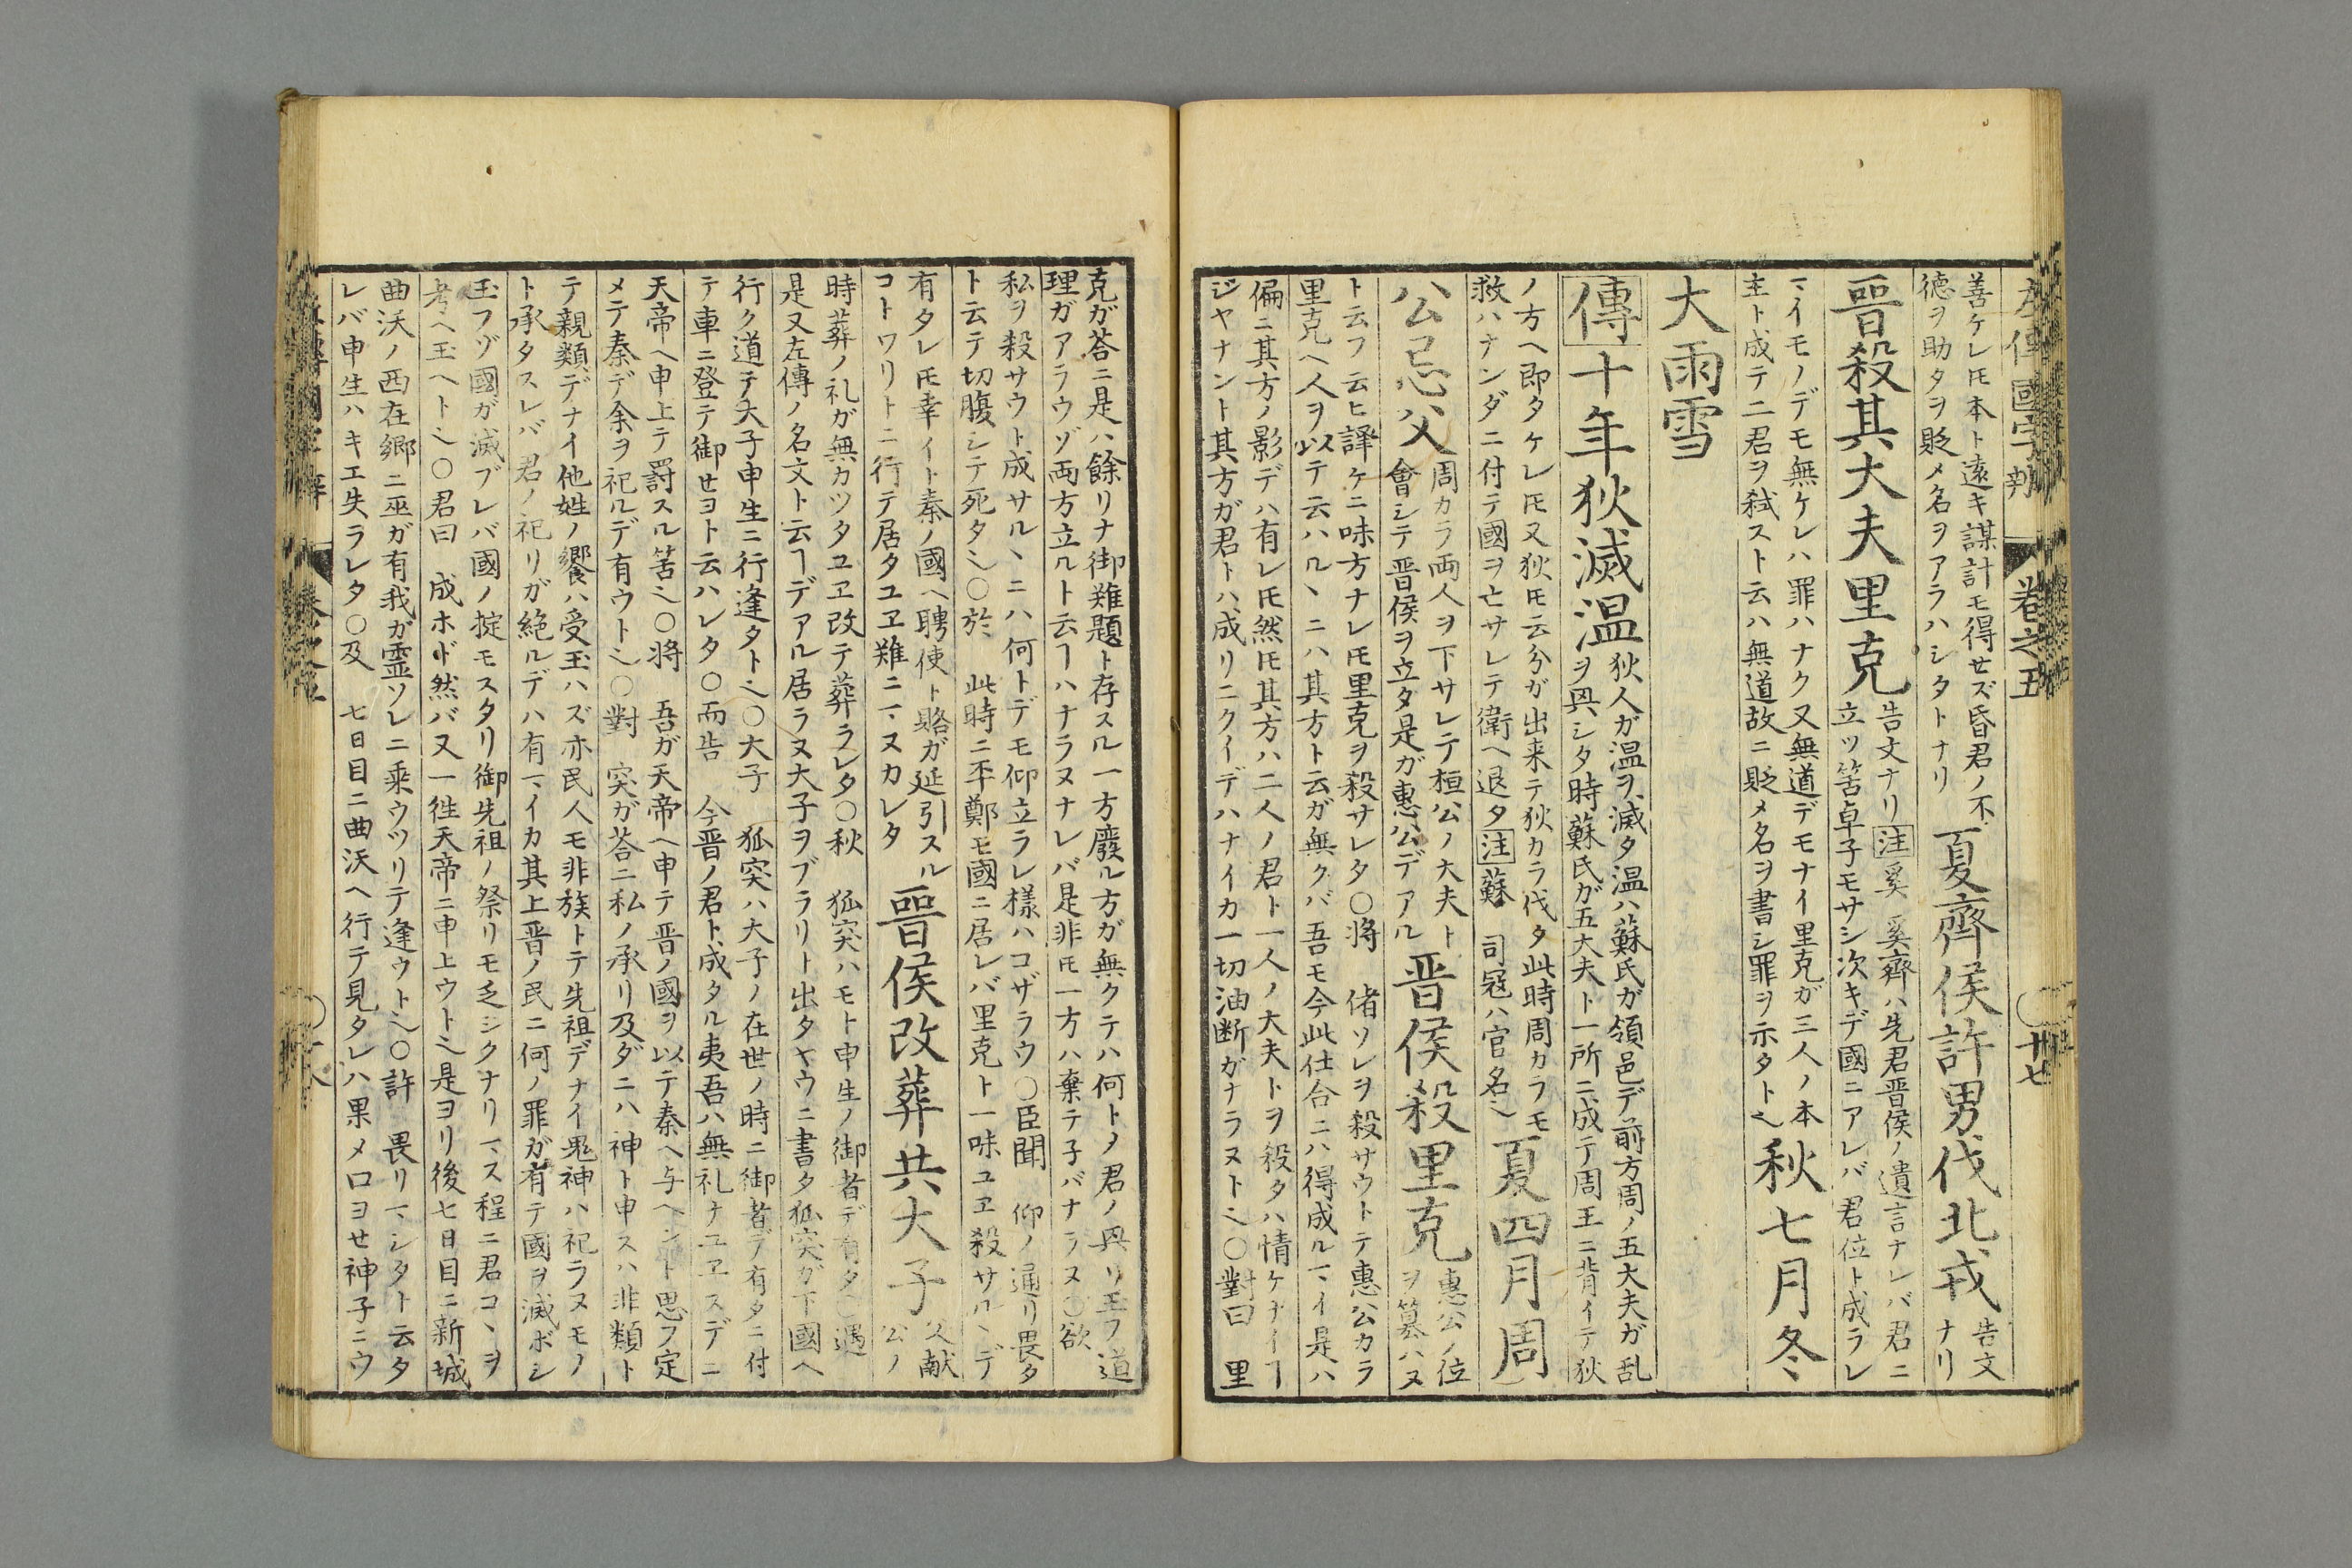 左傳國字辨 卷之五 廿七
善ケレ𪜈本ト遠キ謀計モ得セズ昏君ノ不
徳ヲ助タヲ貶メ名ヲアラハシタトナリ
夏齊侯許男伐北戎
告文
ナリ
晉殺其大夫里克
告文ナリ注奚 奚齊ハ先君晋侯ノ遺言ナレバ君ニ
立ツ筈卓子モサシ次キデ國ニアレバ君位ト成ラレ
マイモノデモ無ケレハ罪ハナク又無道デモナイ里克が三人ノ本
主ト成テ二君ヲ弑ストト云ハ無道故ニ貶メ名ヲ書シ罪ヲ示タト也
秋七月冬
大雨雪
傳十年狄滅温
狄人ガ温ヲ滅タ温ハ蘇氏が領邑デ前方周ノ五大夫ガ乱
ヲ興シタ時蘇氏が五大夫ト一所ニ成テ周王ニ背イテ狄
ノ方ヘ即タケレ𪜈又狄𪜈云分が出来テ狄カラ伐タ此時周カラモ
救ハナンダニ付テ國ヲ亡サレテ衛ヘ退タ注蘇 司冦ハ官名也
夏四月周
公忌父
周カラ両人ヲ下サレテ桓公ノ大夫ト
會シテ晋侯ヲ立タ是ガ惠公デアル
晋侯殺里克
惠公ノ位
ヲ簒ハヌ
ト云フ云ヒ譯ケニ味方ナレ𪜈里克ヲ殺サレタ〇將 偖ソレヲ殺サウトテ惠公カラ
里克ヘ人ヲ以テ云ハルヽニハ其方ト云ガ無クバ吾モ今此仕合ニハ得成ルマイ是ハ
偏ニ其方ノ影デハ有レ𪜈然𪜈其方ハ二人ノ君ト一人ノ大夫トヲ殺タハ情ケナイヿ
ジヤナント其方ガ君トハ成リニクイデハナイカ一切油断ガナラヌト也〇對曰 里
克ガ荅ニ是ハ餘リナ御難題ト存スル一方廢ル方ガ無クテハ何トノ君ノ興リ玉フ道
理ガアラウゾ両方立ルト云ヿハナラヌナレバ是非𪜈一方ハ棄テ子バナラヌ〇欲
私ヲ殺サウト成サルヽニハ何トデモ仰立ラレ様ハコザラウ〇臣聞 仰ノ通リ畏タ
ト云テ切腹シテ死タ也〇於 此時ニ丕鄭モ國ニ居レバ里克ト一味ユヱ殺サルヽデ
有タレ𪜈幸イト秦ノ國ヘ聘使ト賂ガ延引スル
コトワリトニ行テ居タユヱ難ニマヌカレタ
晉侯改葬共大子
父献
公ノ
時葬ノ礼ガ無カツタユヱ改テ葬ラレタ〇秋 狐突ハモト申生ノ御者デ有タ〇遇
是又左傳ノ名文ト云ヿデアル居ラヌ大子ヲブラリト出タヤウニ書タ狐突ガ下國ヘ
行ク道テ大子申生ニ行逢タト也〇大子 狐突ハ大子ノ在世ノ時ニ御者デ有タニ付
テ車ニ登テ御セヨト云ハレタ〇而告 今晋ノ君ト成タル夷吾ハ無礼ナユヱスデニ
天帝ヘ申上テ罰スル筈也〇將 吾が天帝ヘ申テ晋ノ國ヲ以テ秦ヘ与ヘント思フ定
メテ秦デ余ヲ祀ルデ有ウト也〇對 突ガ荅ニ私ノ承リ及ダニハ神ト申スハ非類ト
テ親類デナイ他姓ノ饗ハ受玉ハズ亦民人モ非族トテ先祖デナイ鬼神ハ祀ラヌモノ
ト承タスレバ君ノ祀リガ絶ルデハ有マイカ其上晋ノ民ニ何ノ罪ガ有テ國ヲ滅ボシ
玉フゾ國ガ滅ブレバ國ノ掟モスタリ御先祖ノ祭リモ乏シクナリマス程ニ君コヽヲ
考ヘ玉ヘト也〇君曰 成ホド然バ又一徃天帝ニ申上ウト也是ヨリ後七日目ニ新城
曲沃ノ西在郷ニ巫ガ有我ガ霊ソレニ乗ウツリテ逢ウト也〇許 畏リマシタト云タ
レバ申生ハキエ失ラレタ〇及 七日目ニ曲沃ヘ行テ見タレハ果メ口ヨセ神子ニウ